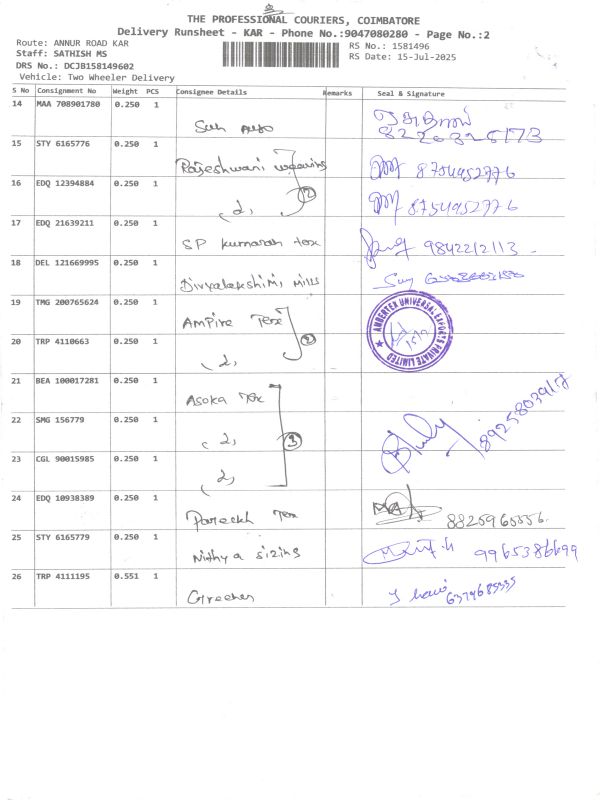 THE PROFESSIONAL COURIERS, COIMBATORE
Delivery Runsheet - KAR - Phone No.:9047080280 - Page No.:2
Route: ANNUR ROAD KAR
Staff: SATHISH MS
DRS No.: DCJB158149602
Vehicle: Two Wheeler Delivery
RS No.: 1581496
RS Date: 15-Jul-2025
S No Consignment No Weight PCS Consignee Details Remarks Seal & Signature
14 MAA 708901780 0.250 1
15 STY 6165776 0.250 1 Rajeshwari weaving 8754952776
16 EDQ 12394884 0.250 1 (2) 8754952776
17 EDQ 21639211 0.250 1 SP kumaran tex 9842212113
18 DEL 121669995 0.250 1 Divyalakshimi mills
19 TMG 200765624 0.250 1 Ampire Tex
AMBERTEX UNIVERSAL EXPORTS PRIVATE LIMITED
20 TRP 4110663 0.250 1 (2)
21 BEA 100017281 0.250 1 Asoka Tex
22 SMG 156779 0.250 1 (3) 8925803917
23 CGL 90015985 0.250 1
24 EDQ 10938389 0.250 1 Pareekh Tex 8825965556
25 STY 6165779 0.250 1 Nithya sizing 9965386699
26 TRP 4111195 0.551 1 6379685335